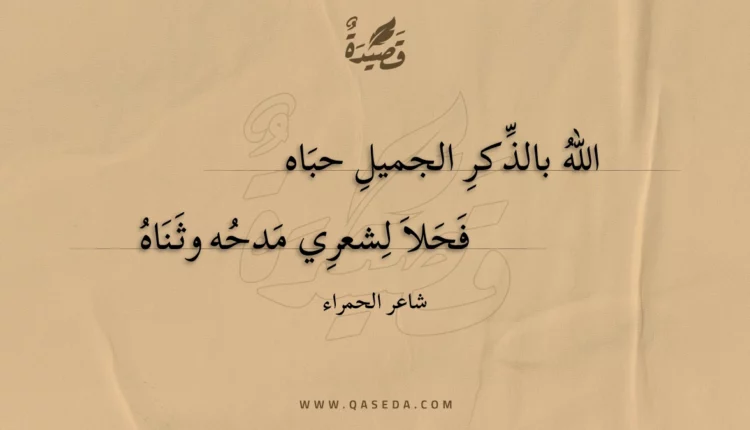 قَصِيْدَةٌ
اللهُ بالذِّكرِ الجميلِ حبَاه
فَحَلاَ لِشعرِي مَدحُه وثَنَاهُ
شاعر الحمراء
WWW.QASEDA.COM